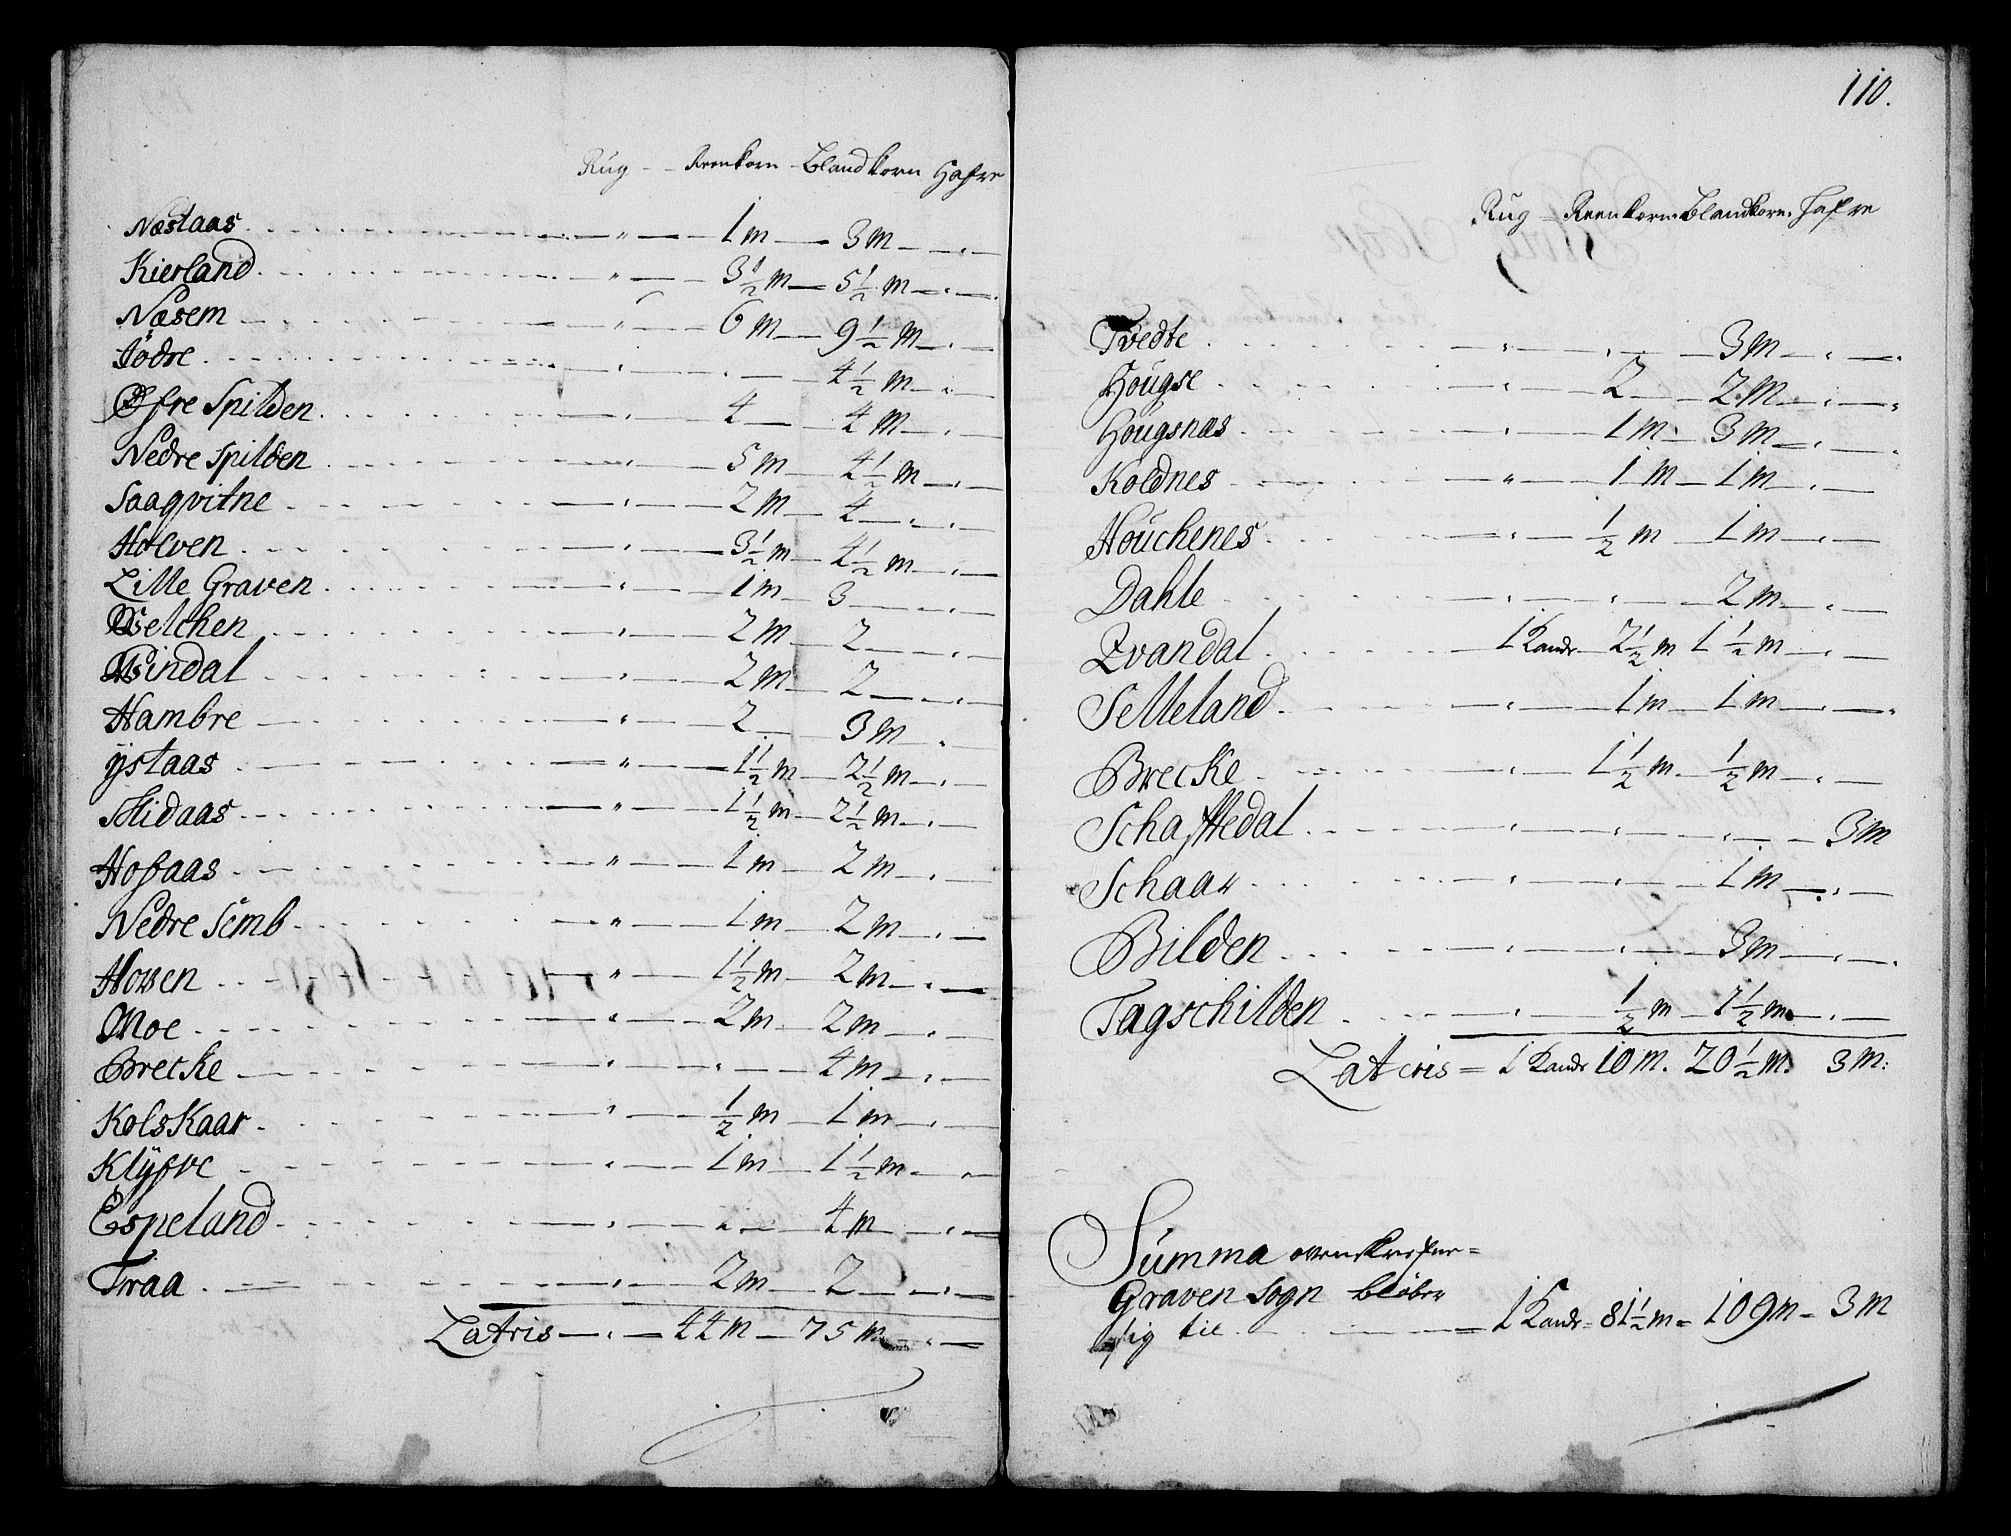 Rug - - Reenkorn - Blandkorn Hafre
Næstaas - " - 1 m - 3 m - "
Kierland - " - 3 1/2 m - 5 1/2 m - "
Næsem - " - 6 m - 9 1/2 m - "
Jödre - " - " - 4 1/2 m - "
Öfre Spilden - " - 4 - 4 m - "
Nedre Spilden - " - 5 m - 4 1/2 m - "
Saaqvitne - " - 2 m - 4 - "
Holven - " - 3 1/2 m - 4 1/2 m - "
Lille Graven - " - 1 m - 3 - "
Welchen - " - 2 m - 2 - "
Windal - " - 2 m - 2 - "
Hambre - " - 2 - 3 m - "
ÿstaas - " - 1 1/2 m - 2 1/2 m - "
Midaas - " - 1 1/2 m - 2 1/2 m - "
Hofaas - " - 1 m - 2 m - "
Nedre Semb - " - 1 m - 2 m - "
Howen - " - 1 1/2 m - 2 m - "
Moe - " - 2 m - 2 m - "
Brecke - " - " - 4 m - "
Kolskaar - " - 1/2 m - 1 m - "
Klÿfve - " - 1 m - 1 1/2 m - "
Espeland - " - " - 4 m - "
Traa - " - 2 m - 2 - "
Latris - " - 44 m - 75 m - "
110.
Rug - Reenkorn - Blandkorn - Hafre
Tvedte - " - " - 3 m - "
Hougse - " - 2 - 2 m - "
Hougsnæs - " - 1 m - 3 m - "
Koldnes - " - 1 m - 1 m - "
Houchenes - " - 1/2 m - 1 m - "
Dahle - " - " - 2 m - "
Qvandal - 1 Kande - 2 1/2 m 1 1/2 m - "
Selleland - " - 1 m - 1 m - "
Brecke - " - 1 1/2 m - 1/2 m - "
Schafftedal - " - " - " - 3 m
Schaar - " - " - 1 m - "
Bilden - " - " - 3 m - "
Tagschilden - " - 1/2 m - 1 1/2 m - "
Lateris = 1 Kande 10 m. 20 1/2 m. 3 m:
Summa ovenskrefne=
Graven Sogn belöber
sig til - 1 Kande = 81 1/2 m = 109 m - 3 m